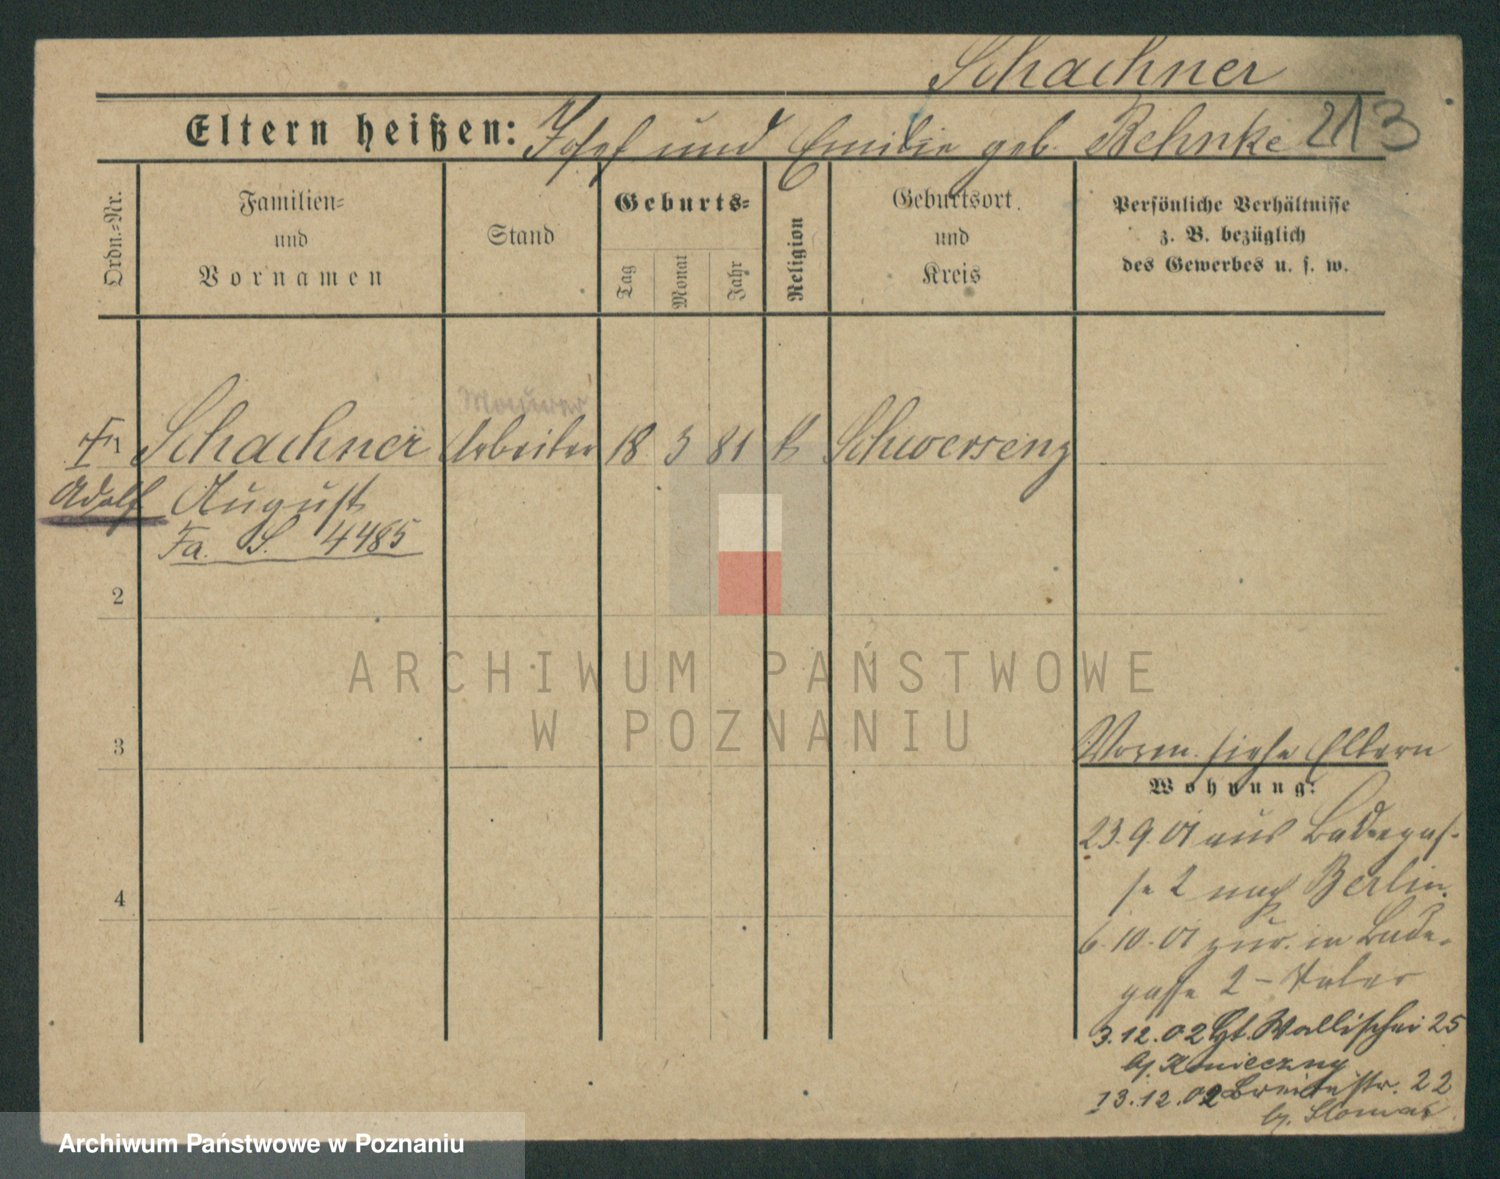 Schachner
Eltern heißen: Josef und Emilie geb. Behnke 213
Ordn.-Nr.
Familien-
und
Vornamen
Stand
Geburts-
Tag
Monat
Jahr
Religion
Geburtsort
und
Kreis
Persönliche Verhältnisse
z. B. bezüglich
des Gewerbes u. s. w.
Maurer
Schachner Arbeiter 18 3 81 k Schwersenz
Adolf August
Fa. S. 4485
2
3
4
ARCHIWUM PAŃSTWOWE
W POZNANIU
Vorm. siehe Eltern
Wohnung:
23.9.01 aus Badegas-
se 2 nach Berlin.
6.10.01 zur. in Bade-
gasse 2 - Vater
3.12.02 Wallischei 25
bj. Konieczny
13.12.02 Breitestr. 22
bj.
Archiwum Państwowe w Poznaniu